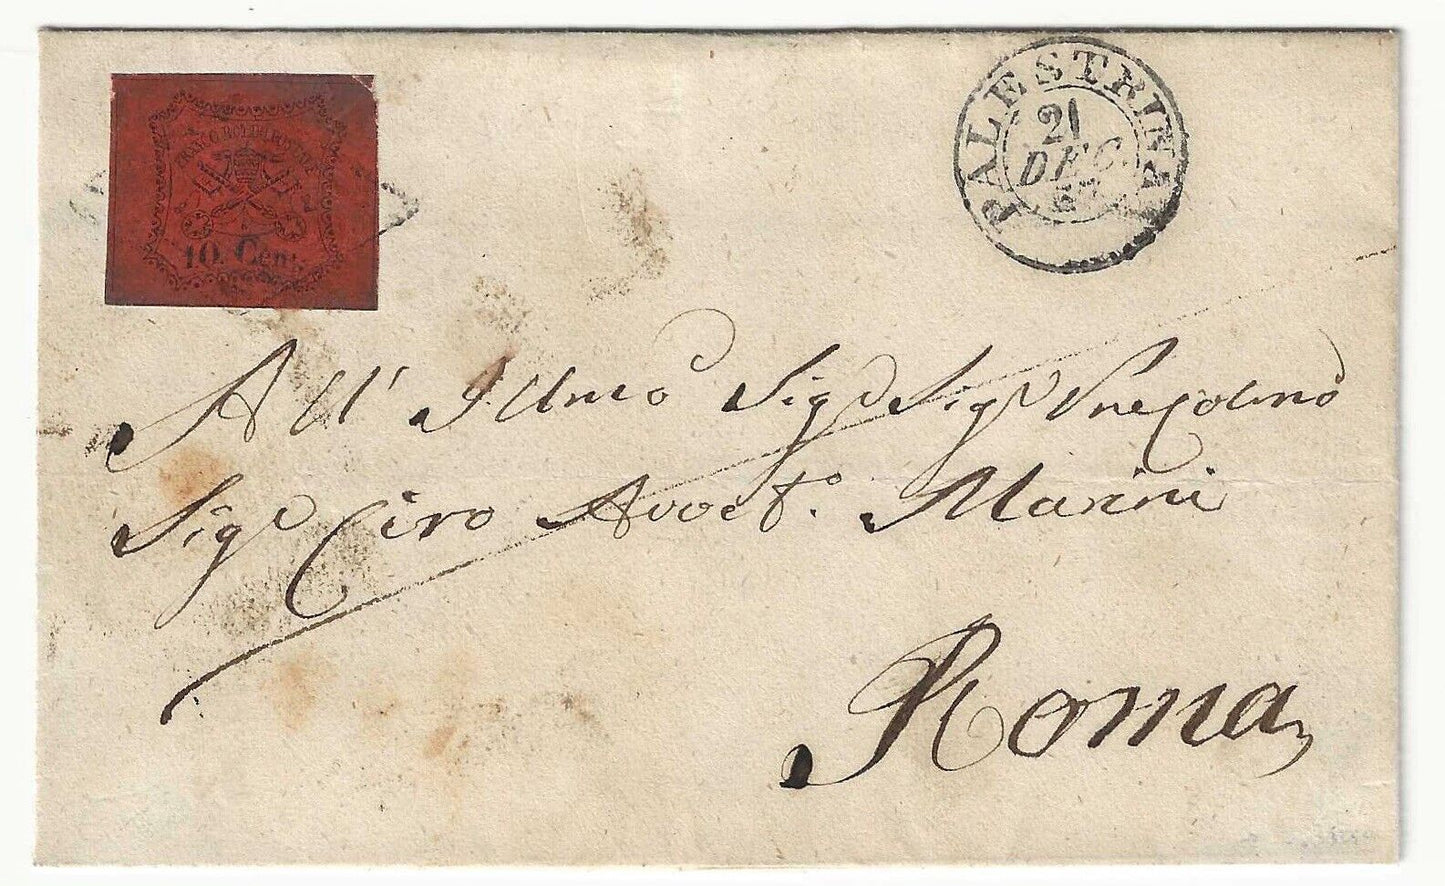 FRANCO BOLLO POSTALE
10. Cent
PALESTRINA
21
DEC.
67
All' Illmo Sigre Sigre Pne Colmo
Sigre Ciro Avvto. Marini
Roma